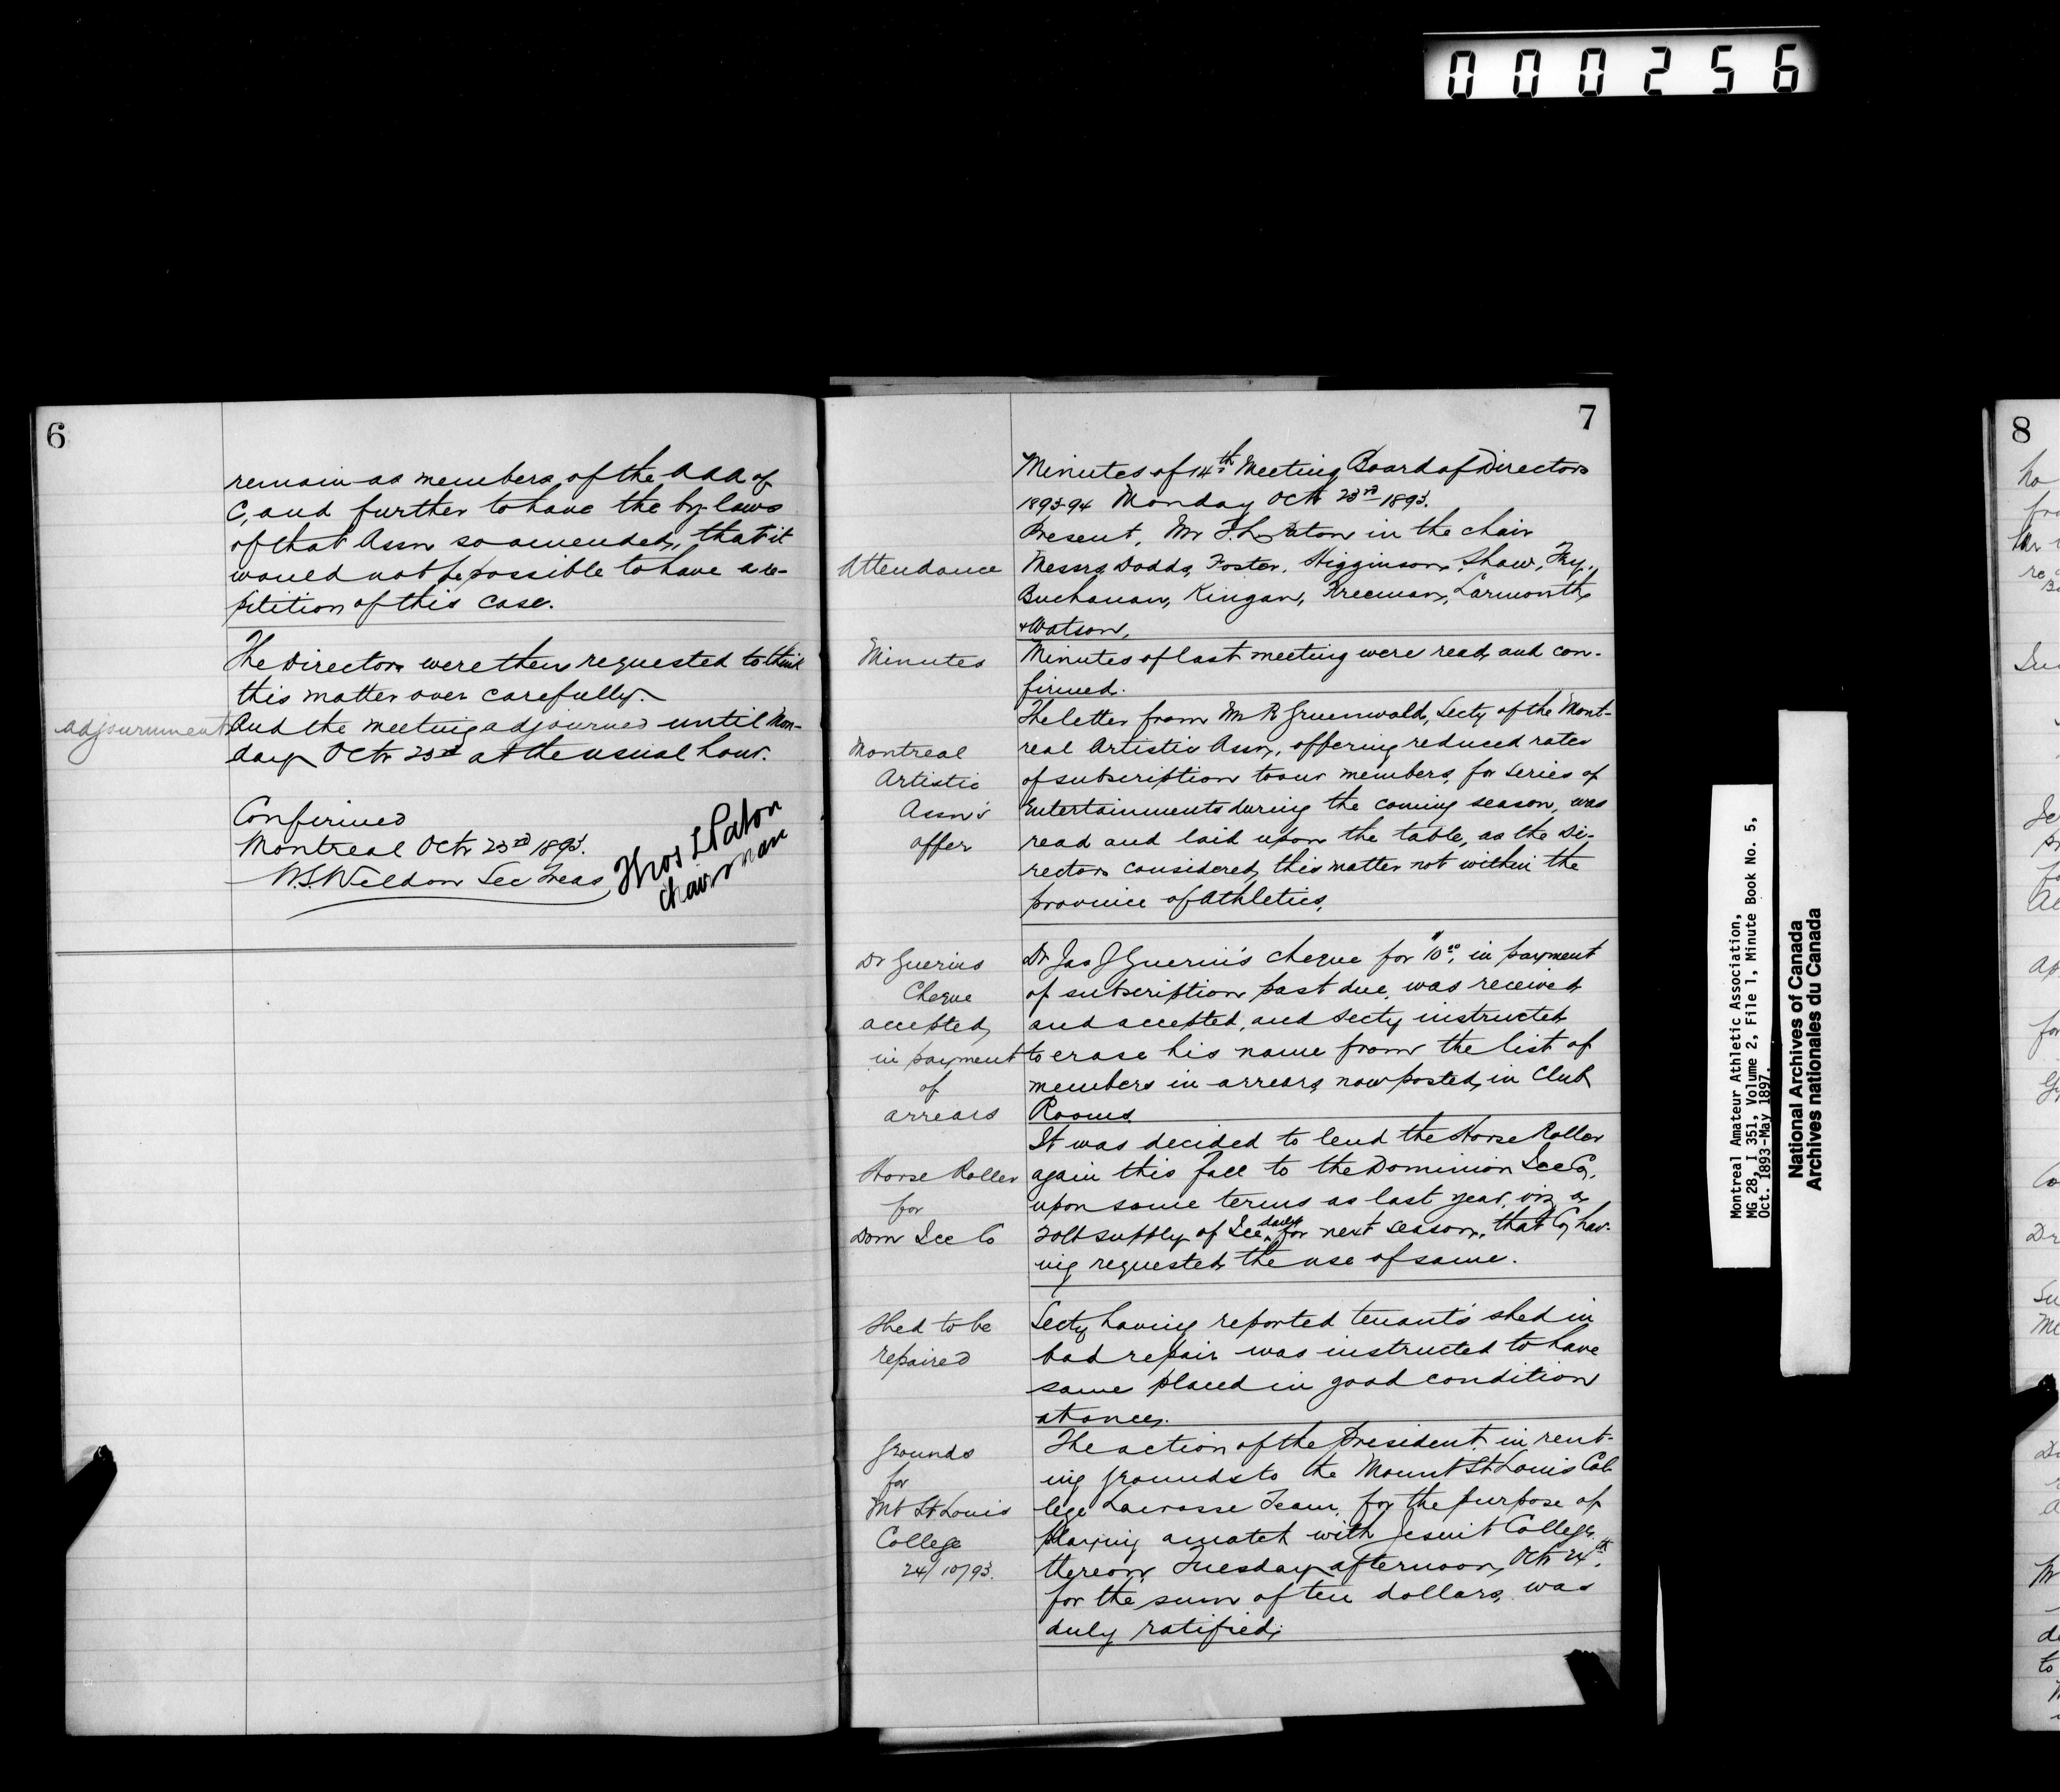 000256
6
remain as members of the AAA of
C, and further to have the by-laws
of that Assn so amended, that it
would not be possible to have a re-
petition of this case.
The Directors were then requested to think
this matter over carefully.
adjournment And the meeting adjourned until Mon-
day Octr 23rd at the usual hour.
Confirmed
Montreal Octr 23rd 1893.
W.S. Weldon Sec Treas
Thos L Paton
Chairman
7
Minutes of 14th Meeting Board of Directors
1893-94 Monday Octr 23rd 1893.
Present, Mr T. L. Paton in the chair
Attendance Messrs Dodds, Foster, Higginson, Shaw, Fry,
Buchanan, Kingan, Freeman, Larmonth,
& Watson,
Minutes Minutes of last meeting were read and con-
firmed.
The letter from Mr R Gruenwald, Secty of the Mont-
Montreal real Artistic Assn, offering reduced rates
Artistic of subscription to our members, for series of
Assn's Entertainments during the coming season, was
offer read and laid upon the table, as the Di-
rectors considered, this matter not within the
province of Athletics,
Dr Guerins Dr Jas J Guerin's cheque for $10.00, in payment
Cheque of subscription past due, was received
accepted, and accepted, and Secty instructed
in payment to erase his name from the list of
of members in arrears, now posted, in Club
arrears Rooms.
It was decided to lend the Horse Roller
Horse Roller again this fall to the Dominion Ice Co,
for upon same terms as last year, viz a
Dom Ice Co 20lb supply of Ice daily for next season, that Co, hav-
ing requested the use of same.
Shed to be Secty having reported tenant's shed in
repaired bad repair was instructed to have
same placed in good condition
at once.
Grounds The action of the President in rent-
for ing grounds to the Mount St Louis Col-
Mt St Louis lege Lacrosse Team, for the purpose of
College playing a match with Jesuit College,
24/10/93. thereon, Tuesday afternoon, Octr 24th,
for the sum of ten dollars, was
duly ratified;
Montreal Amateur Athletic Association,
MG 28, I 351, Volume 2, File 1, Minute Book No. 5,
Oct. 1893-May 1897.
National Archives of Canada
Archives nationales du Canada
8